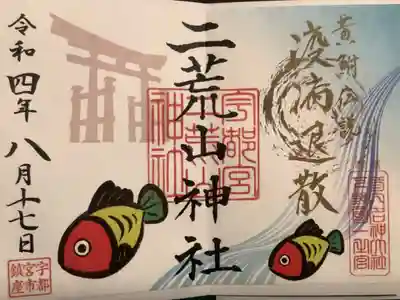 黄鮒伝説
疫病退散
二荒山神社
宇都宮
二荒山
神社
令和四年八月十七日
宇都
宮市
鎮座